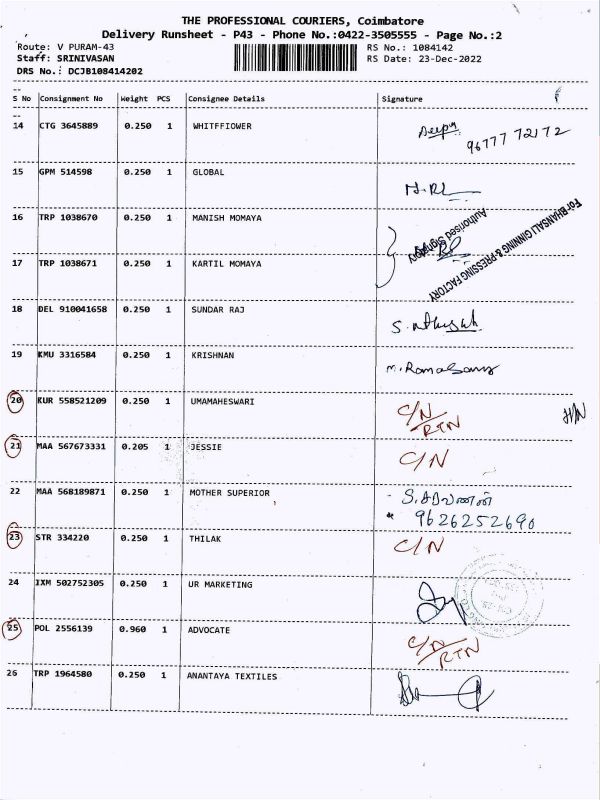 THE PROFESSIONAL COURIERS, Coimbatore
Delivery Runsheet - P43 - Phone No.:0422-3505555 - Page No.:2
Route: V PURAM-43 RS No.: 1084142
Staff: SRINIVASAN RS Date: 23-Dec-2022
DRS No.: DCJB108414202
S No Consignment No Weight PCS Consignee Details Signature
14 CTG 3645889 0.250 1 WHITFFIOWER Deepa
96777 72172
15 GPM 514598 0.250 1 GLOBAL
16 TRP 1038670 0.250 1 MANISH MOMAYA
For BHANSALI GINNING & PRESSING FACTORY
Authorised Signatory
17 TRP 1038671 0.250 1 KARTIL MOMAYA
18 DEL 910041658 0.250 1 SUNDAR RAJ
19 KMU 3316584 0.250 1 KRISHNAN
20 KUR 558521209 0.250 1 UMAMAHESWARI C/N
RTN
21 MAA 567673331 0.205 1 JESSIE C/N
22 MAA 568189871 0.250 1 MOTHER SUPERIOR S. சரவணன்
9626252690
23 STR 334220 0.250 1 THILAK C/N
24 IXM 502752305 0.250 1 UR MARKETING
25 POL 2556139 0.960 1 ADVOCATE C/N
RTN
26 TRP 1964580 0.250 1 ANANTAYA TEXTILES